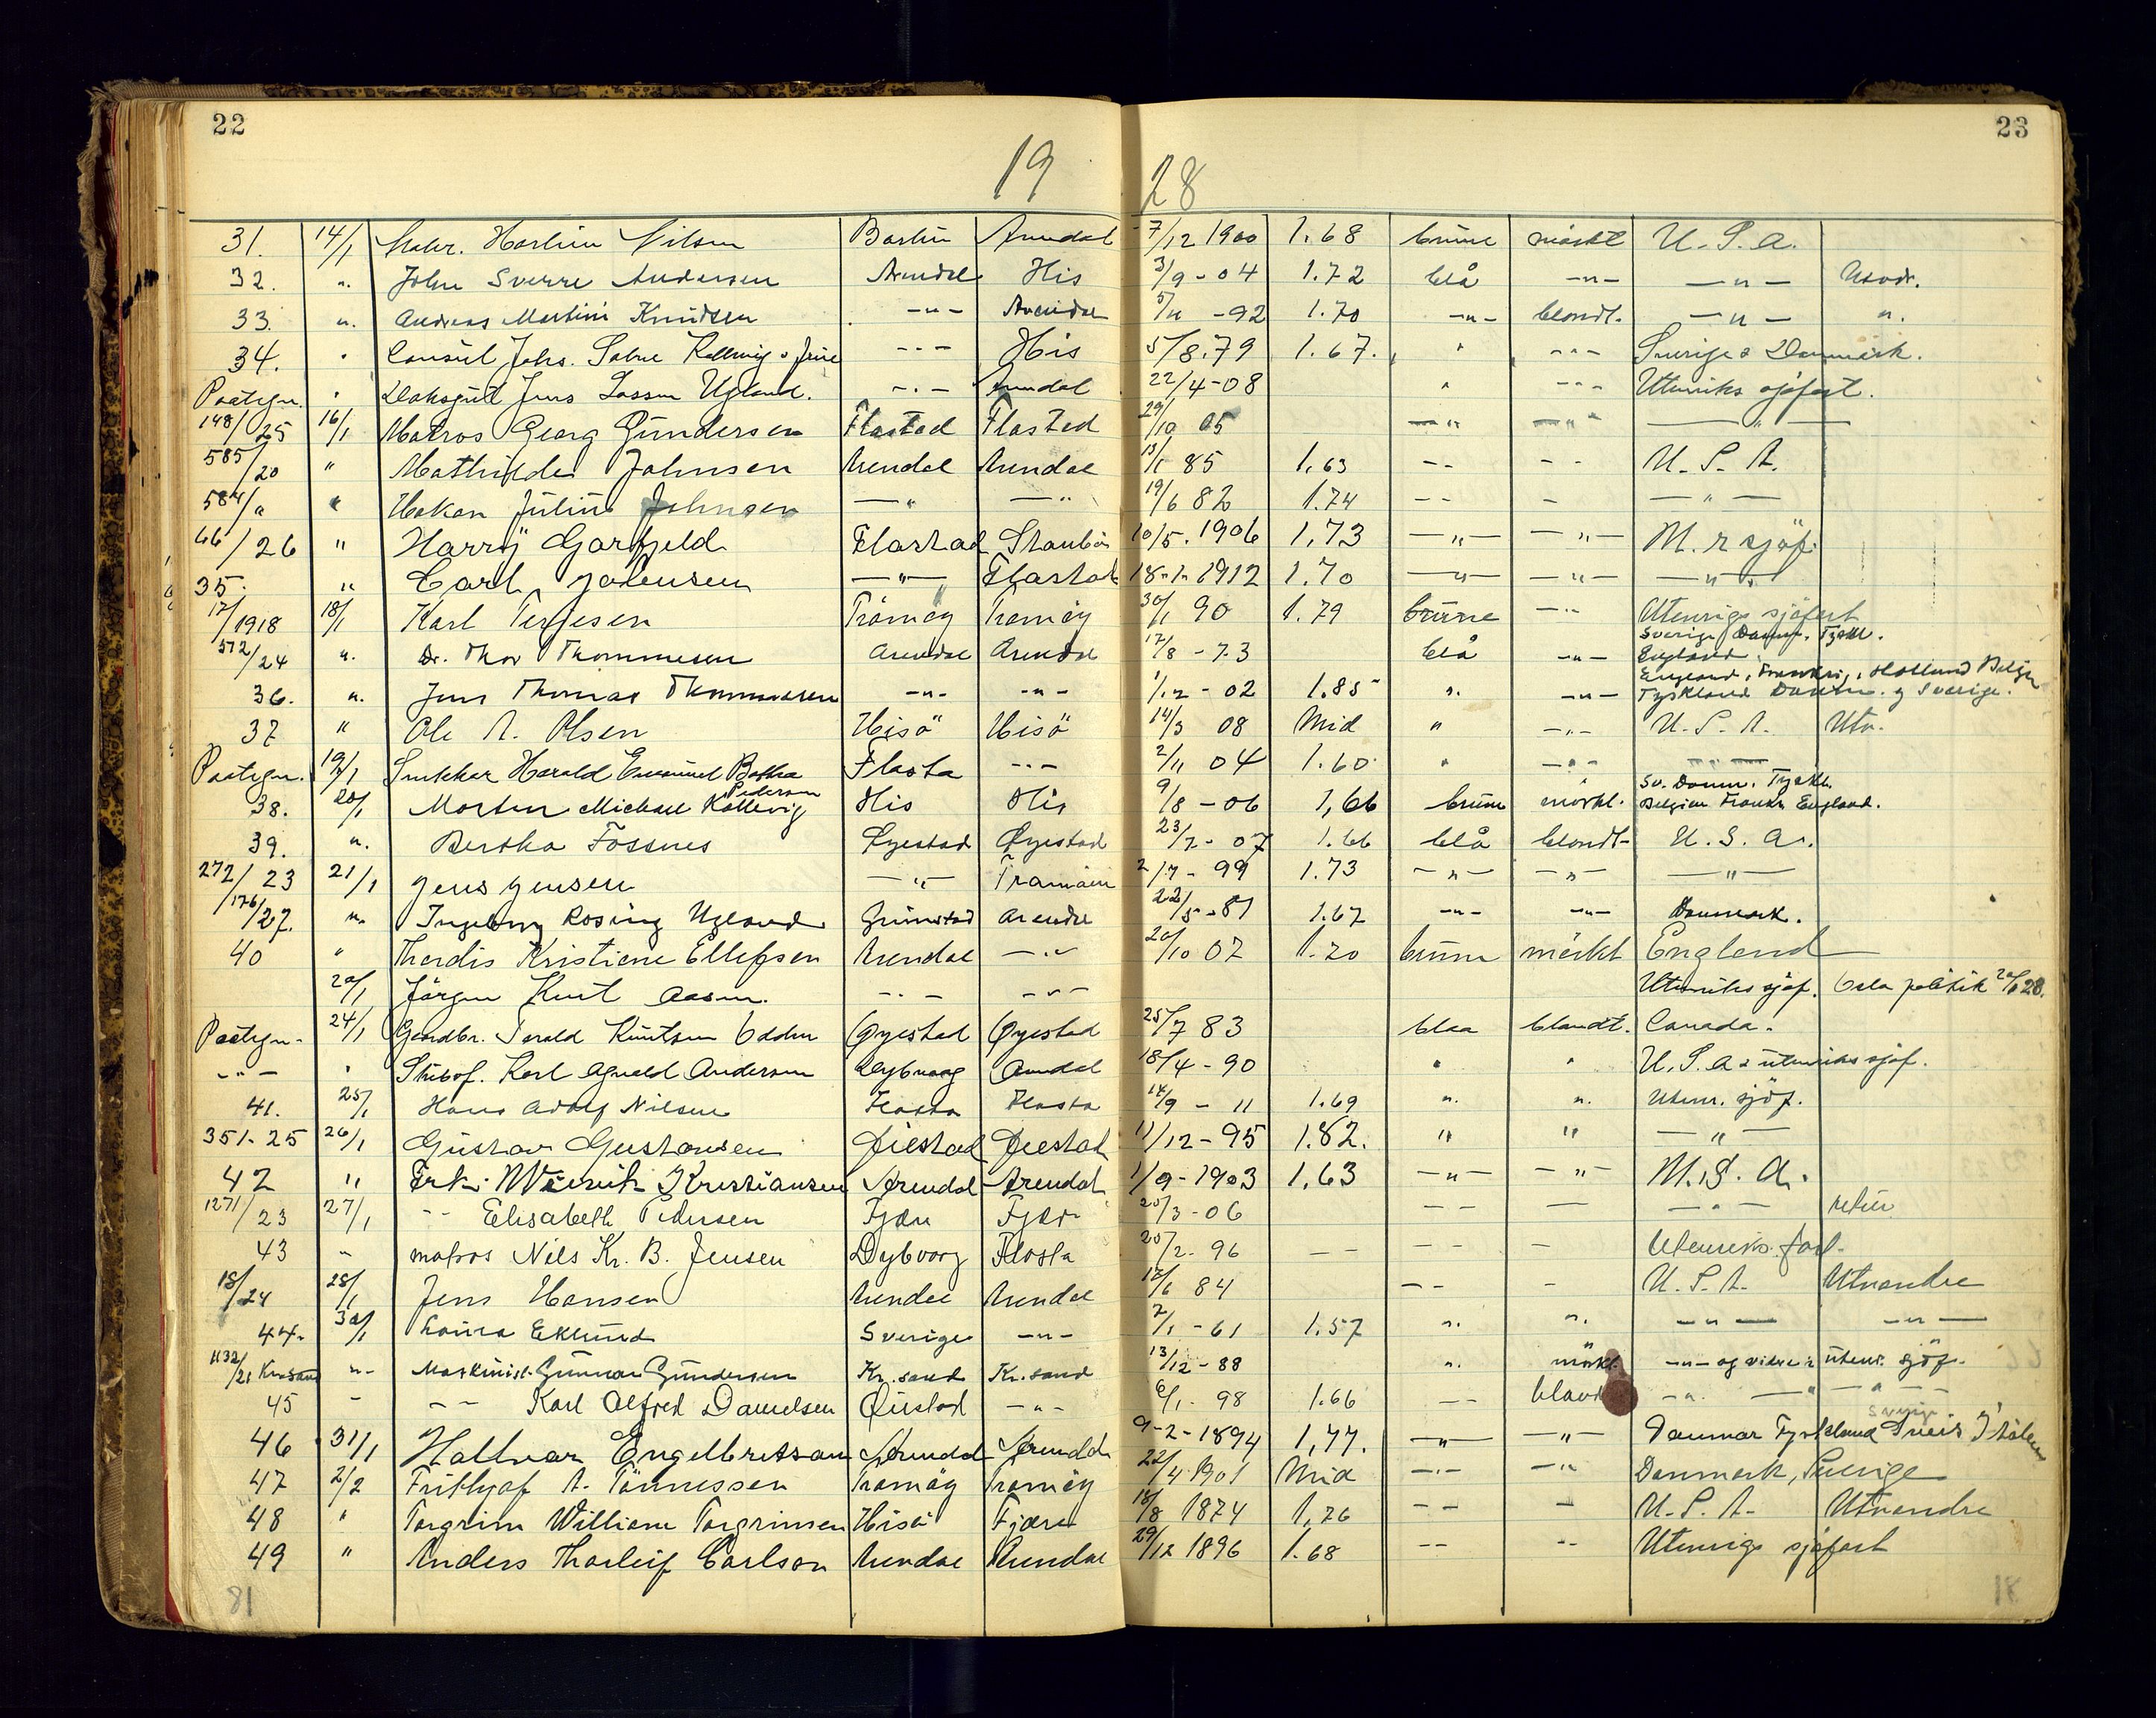 22
23
19 28
31. 14/1 Nilsen Arendal 7/12 1900 1.68 brune mørkt U.S.A.
32. " John Sverre Andersen Arendal His 3/9 - 04 1.72 blå -"- -"- Utvdr.
33. " Andreas Martin Knudsen -"- Arendal -92 1.70 -"- blondt. -"- "
34. " Consul Johs. Kallevig -"- His 5/8.79 1.67. " -"- Sverige & Danmark.
Paategn. " Jens Lassen Ugland. -"- Arendal 22/4-08 " -"- Utenriks sjøfart.
148/25 16/1 Matros Georg Gundersen Flostad Flostad 29/10 05 -"- -"- -"-
585/20 " Mathilde Johnsen Arendal Arendal 13/1 85 1,63 -- -- U.S.A.
584/" " Hakon Julius Johnsen -"- -"- 19/6 82 1.74 -- - -"-
66/26 " Harry Garfjeld Flostad Staubø 10/5. 1906 1,73 -"- -"- sjøf.
35. " Carl Johensen -"- Flostad 18-1-1912 1.70 -"- -"- -"-
17/1918 18/1 Karl Terjesen Tromøy Tromøy 30/1 90 1.79 brune -"- Utenrigs sjøfart
572/24 " Dr. Thor Thommesen Arendal Arendal 17/8 - 73 blå -"- Sverige, Danm. Tyskl.
England.
36. " Jens Thomas Thommesen -"- -"- 1/2 - 02 1.85 " -"- England, Frankri, Holland Belgn
Tyskland Danm. og Sverige.
37 " Ole A. Olsen Hisö Hisö 14/3 08 Mid " -"- U.S.A. Utv.
Paategn. 19/1 Snekker Harald Emanuel Flosta -"- 2/11 04 1.60 " -"- -"-
38. 20/1 Morten Michael Pedersen Kallevig His His 9/8 - 06 1,66 brune mørkt. Sv. Danm. Tyskl.
Belgien Frankr. England.
39. " Bertha Fossnes Øyestad Øyestad 23/2 - 07 1.66 blå blondt- U.S.A.
272/23 21/1 Jens Jensen -"- 2/7 - 99 1.73 -"- -"- -"-
176/27. " Ingeborg Rosing Ugland Grimstad Arendal 22/5-81 1.67 -"- -"- Danmark.
40 " Thordis Kristiane Ellefsen Arendal -"- 20/10 07 1.70 brune mørkt England
20/1 Jörgen Knut Aasen. -"- -"- Utenriks sjøf. Oslo politik 28.
Paategn. 24/1 Gaardbr. Knutsen Øyestad Øyestad 25/7 83 blaa blondt. Canada.
-"- " Karl Agnald Andersen Dybvaag Arendal 18/4-90 " " U.S.A & utenriks sjøf.
41. 25/1 Hans Adolf Nilsen Flosta Flosta 14/9 - 11 1.69 " " Utenr. sjöf.
351-25 26/1 Gustav Gustavsen Øiestad Øiestad 11/12-95 1.82. " " -"-
42 " Frk. Kristiansen Arendal Arendal 1/9-1903 1,63 -"- -"- U.S.A.
1271/23 27/1 -- Elisabeth Pedersen Fjære Fjære 20/3-06 -- - -"- retur
43 " matros Nils Kr. B. Jensen Dybvaag Flosta 20/2- 96 -- -- - Utenriks fart.
18/24 28/1 Jens Hansen Arendal Arendal 12/6 84 -- - U.S.A. Utvandre
44. 30/1 Lovisa Eklund Sverige -"- 7/1 - 61 1.57 " " -"- -"-
1132/21 Kr.sand "- Maskinist Gunnar Gundersen Kr.sand Kr.sand 13/12-88 " mørkt. -"- og videre i utenr. sjöf.
45 - -- Karl Alfred Danielsen Øiestad -"- 6/1- 98 1.66 -- blond -"- -"-
46 31/1 Hallvar Engelbretsen Arendal Arendal 9-2-1894 1,77. -"- -"- Danmar Tyskland Sverge Sveis Itali
47 2/2 Frithjof A. Tønnessen Tromøy Tromøy 22/4 1901 Mid -"- -"- Danmark, Sverige
48 " Torgrim William Torgrimsen Hisö Fjære 18/8 1874 1,76 -- - U.S.A. Utvandre
49 " Anders Thorleif Carlson Arendal Arendal 29/12 1896 1.68 -- -- Utenrigs sjøfart
81
18